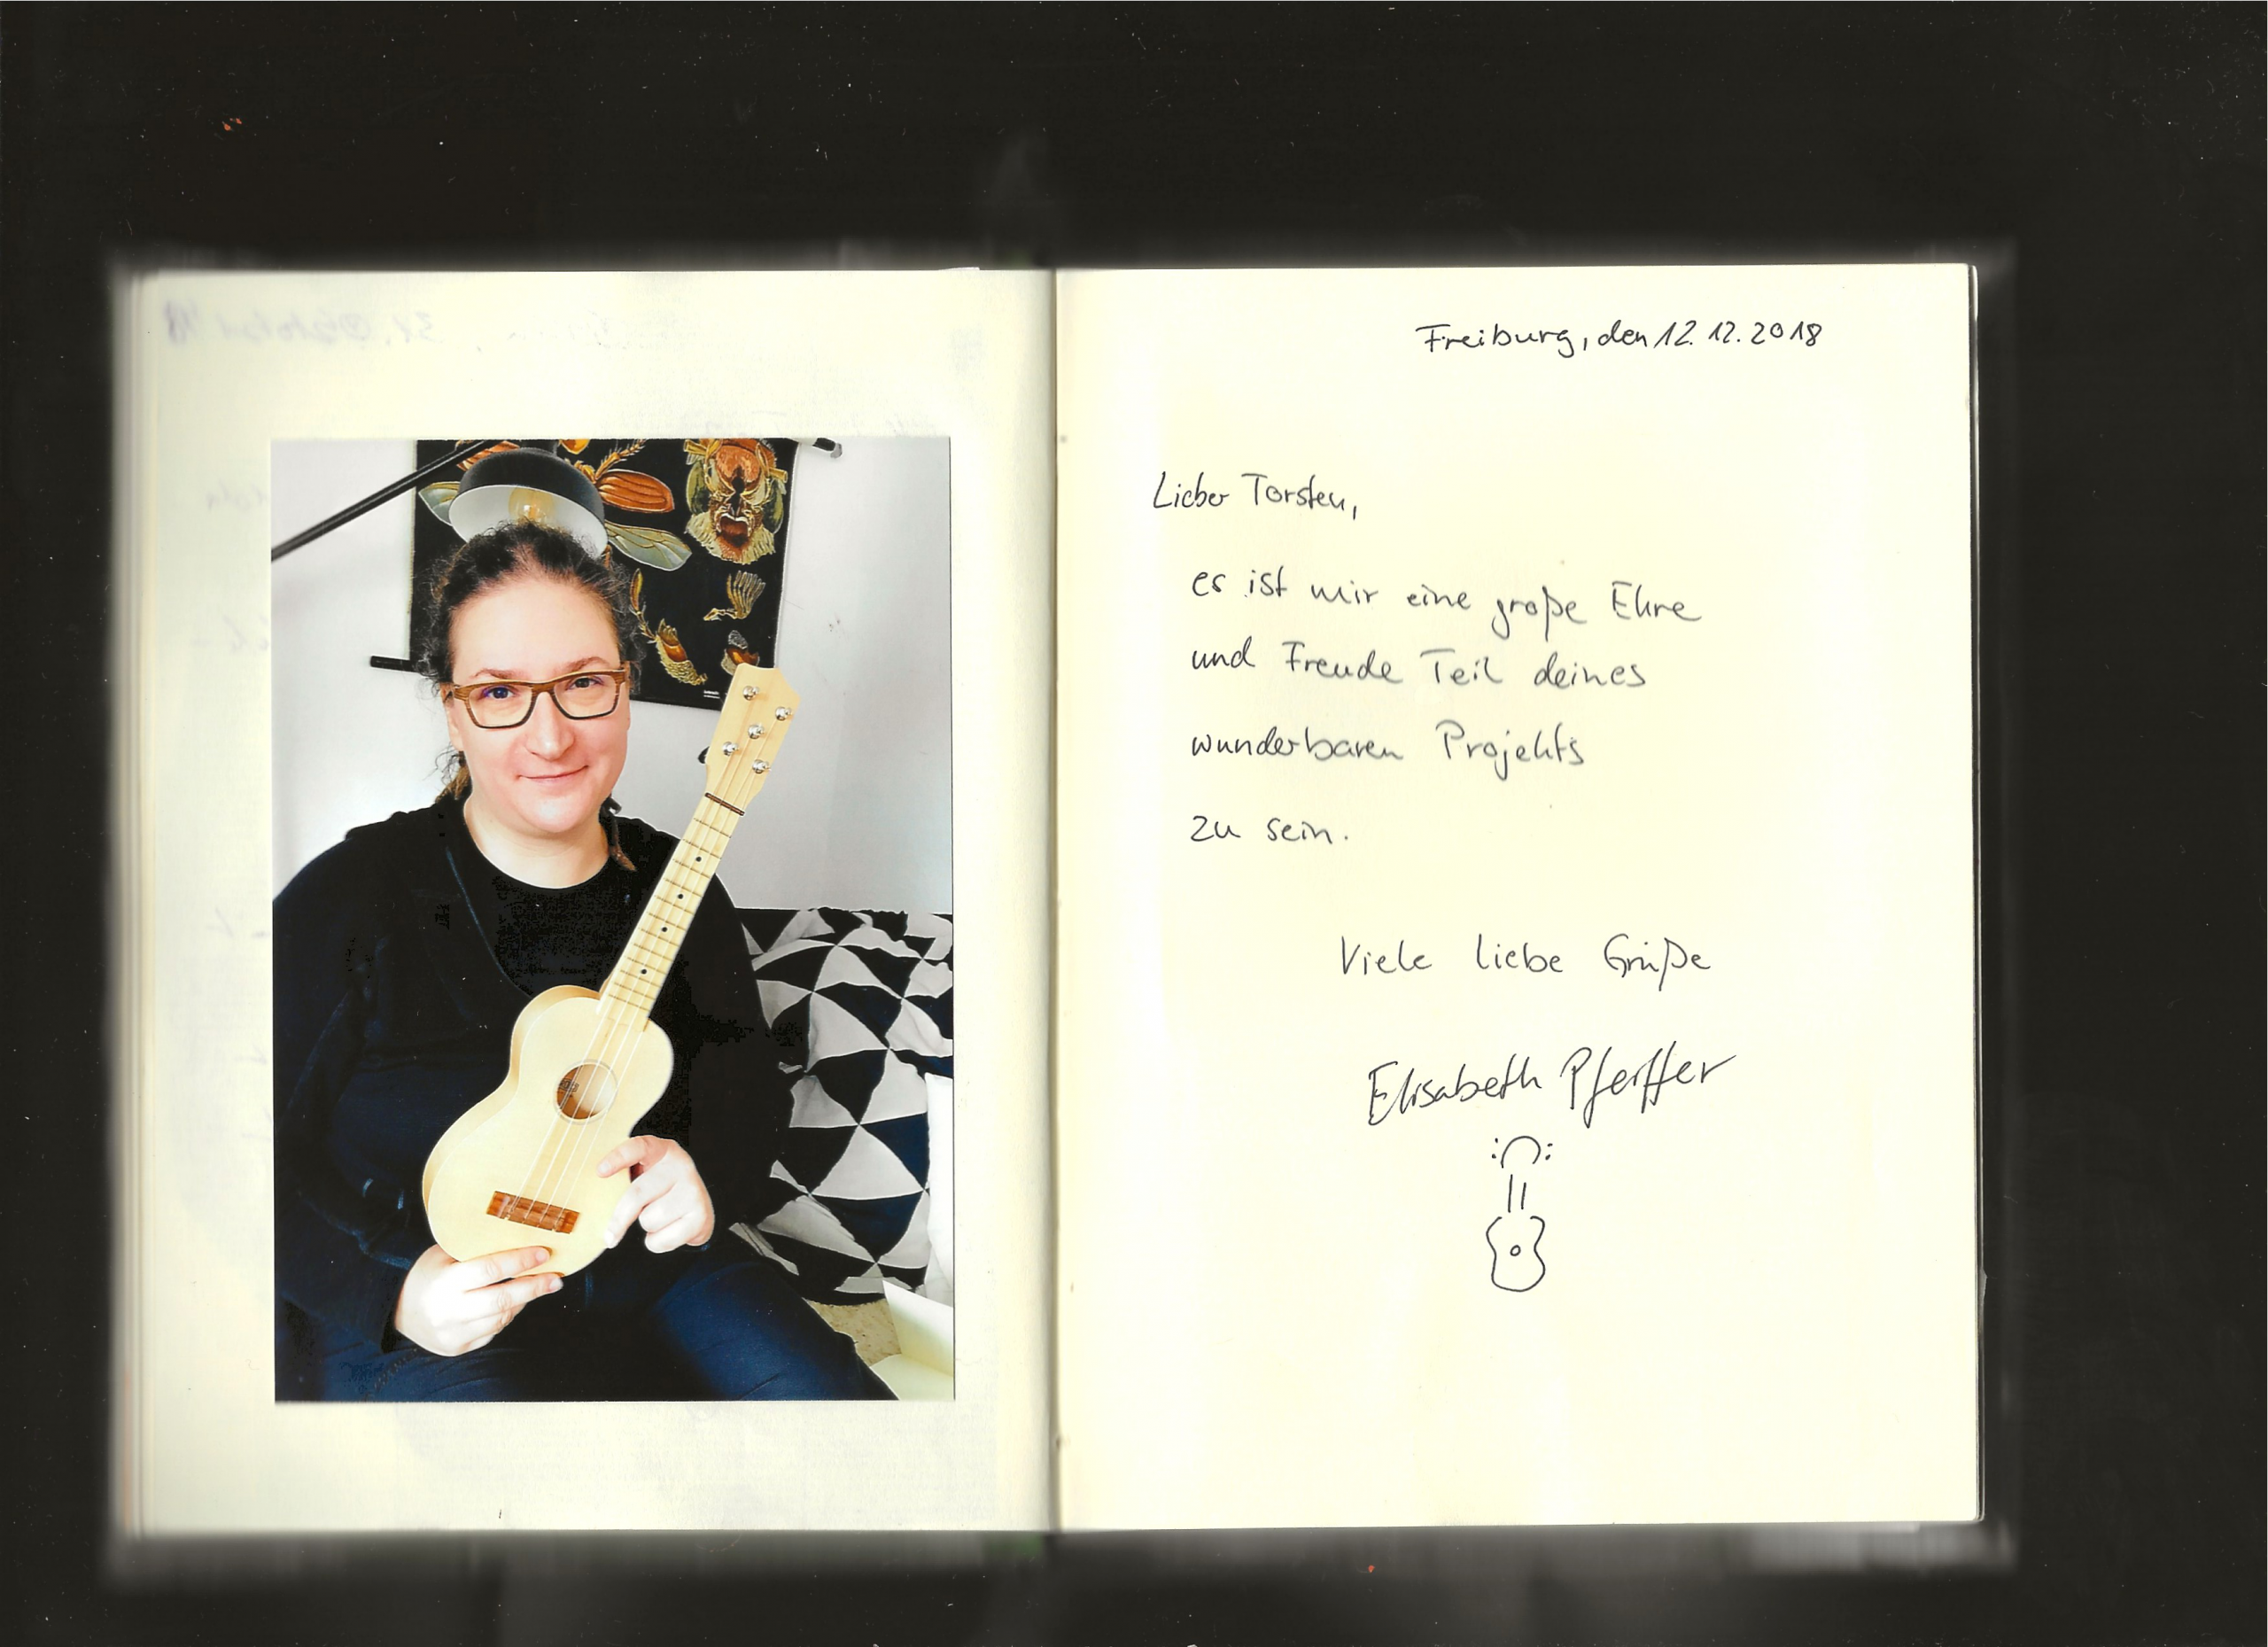 Freiburg, den 12.12.2018
Lieber Torsten,
es ist mir eine große Ehre
und Freude Teil deines
wunderbaren Projekts
zu sein.
Viele liebe Grüße
Elisabeth Pfeiffer